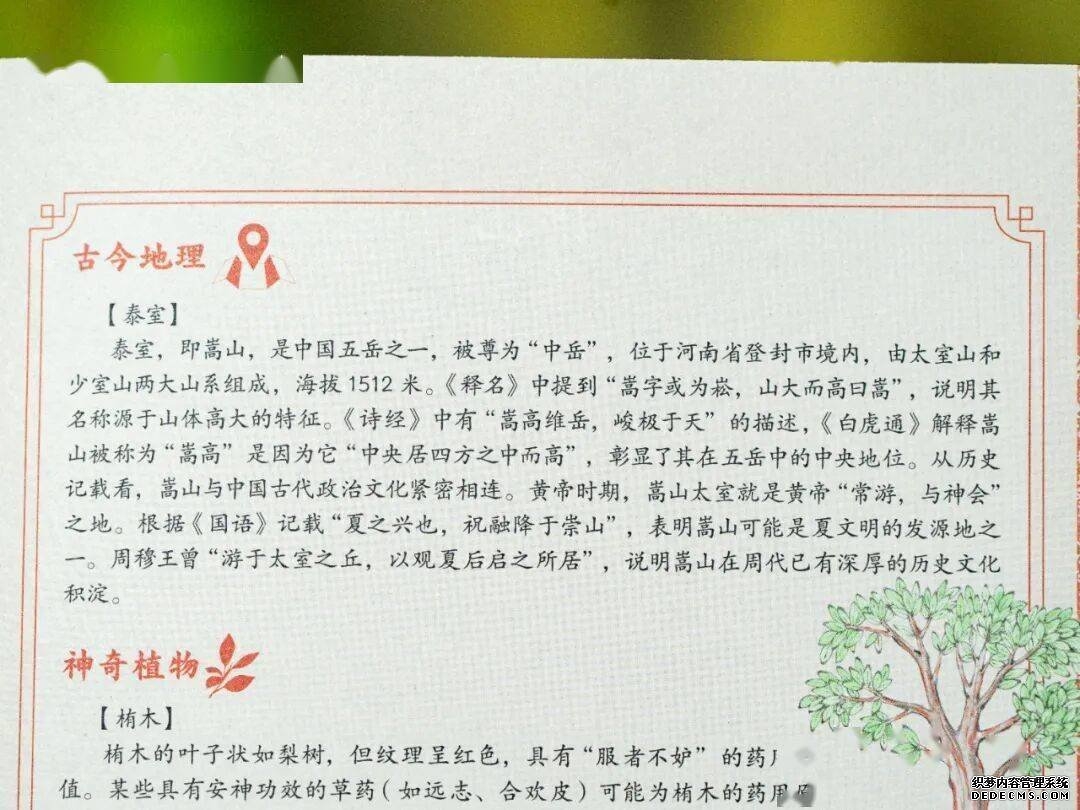 古今地理
【泰室】
泰室，即嵩山，是中国五岳之一，被尊为“中岳”，位于河南省登封市境内，由太室山和
少室山两大山系组成，海拔1512米。《释名》中提到“嵩字或为崧，山大而高曰嵩”，说明其
名称源于山体高大的特征。《诗经》中有“嵩高维岳，峻极于天”的描述，《白虎通》解释嵩
山被称为“嵩高”是因为它“中央居四方之中而高”，彰显了其在五岳中的中央地位。从历史
记载看，嵩山与中国古代政治文化紧密相连。黄帝时期，嵩山太室就是黄帝“常游，与神会”
之地。根据《国语》记载“夏之兴也，祝融降于崇山”，表明嵩山可能是夏文明的发源地之
一。周穆王曾“游于太室之丘，以观夏后启之所居”，说明嵩山在周代已有深厚的历史文化
积淀。
神奇植物
【栯木】
栯木的叶子状如梨树，但纹理呈红色，具有“服者不妒”的药
值。某些具有安神功效的草药（如远志、合欢皮）可能为栯木的药用
织梦内容管理系统
DEDECMS.COM